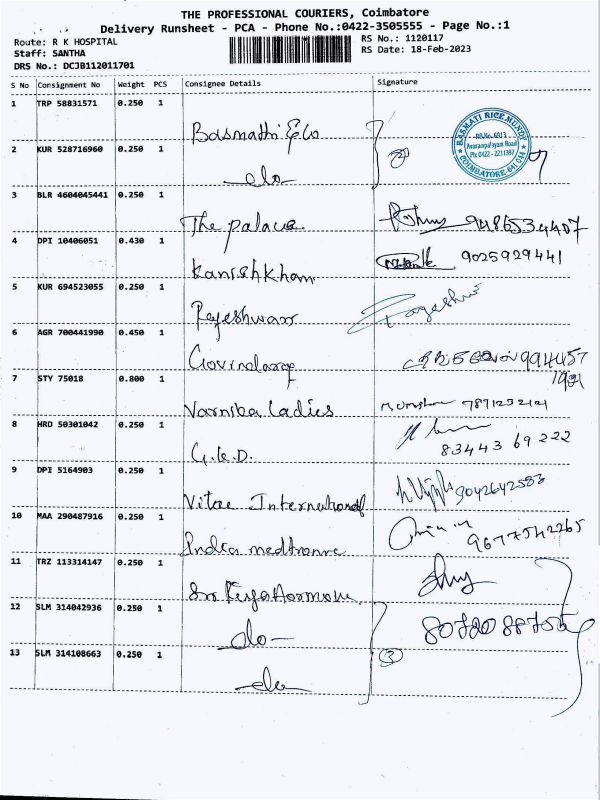 THE PROFESSIONAL COURIERS, Coimbatore
Delivery Runsheet - PCA - Phone No.:0422-3505555 - Page No.:1
Route: R K HOSPITAL
Staff: SANTHA
DRS No.: DCJB112011701
RS No.: 1120117
RS Date: 18-Feb-2023
S No Consignment No Weight PCS Consignee Details Signature
1 TRP 58831571 0.250 1 Basmathi & Co
BASMATI RICE MUNDY
Avarampalayam Road
Ph: 0422 - 2211397
COIMBATORE-641 044
2 KUR 528716960 0.250 1 -do- (2)
3 BLR 4604045441 0.250 1 The palace 9486534407
4 DPI 10406051 0.430 1 Kanishkham 9025929441
5 KUR 694523055 0.250 1 Rajeshwari
6 AGR 700441990 0.450 1 Govindaraj
7 STY 75018 0.800 1 Ladies
8 HRD 50301042 0.250 1 G.K.D. 83443 69222
9 DPI 5164903 0.250 1 Vitae International 9042642553
10 MAA 290487916 0.250 1 India 9677542265
11 TRZ 113314147 0.250 1 Sri
12 SLM 314042936 0.250 1 -do-
13 SLM 314108663 0.250 1 -do- (3)